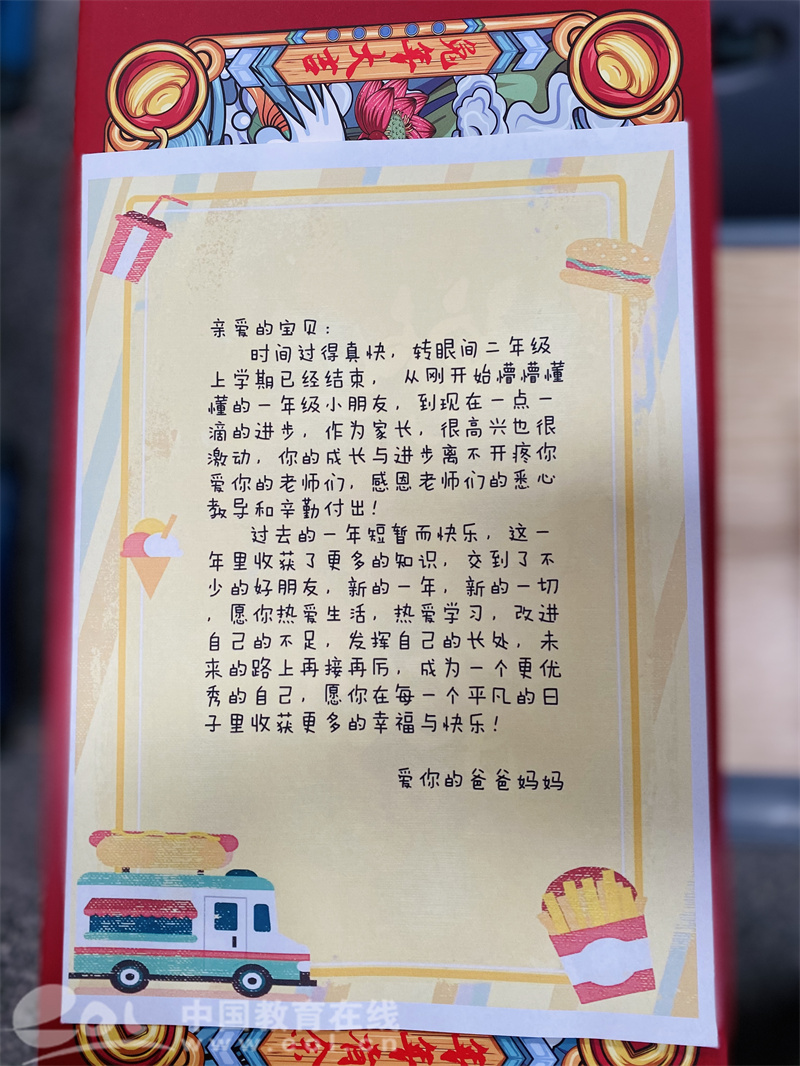 兔年大吉
亲爱的宝贝：
时间过得真快，转眼间二年级
上学期已经结束，从刚开始懵懵懂
懂的一年级小朋友，到现在一点一
滴的进步，作为家长，很高兴也很
激动，你的成长与进步离不开疼你
爱你的老师们，感恩老师们的悉心
教导和辛勤付出！
过去的一年短暂而快乐，这一
年里收获了更多的知识，交到了不
少的好朋友，新的一年，新的一切
，愿你热爱生活，热爱学习，改进
自己的不足，发挥自己的长处，未
来的路上再接再厉，成为一个更优
秀的自己，愿你在每一个平凡的日
子里收获更多的幸福与快乐！
爱你的爸爸妈妈
中国教育在线
www.eol.cn